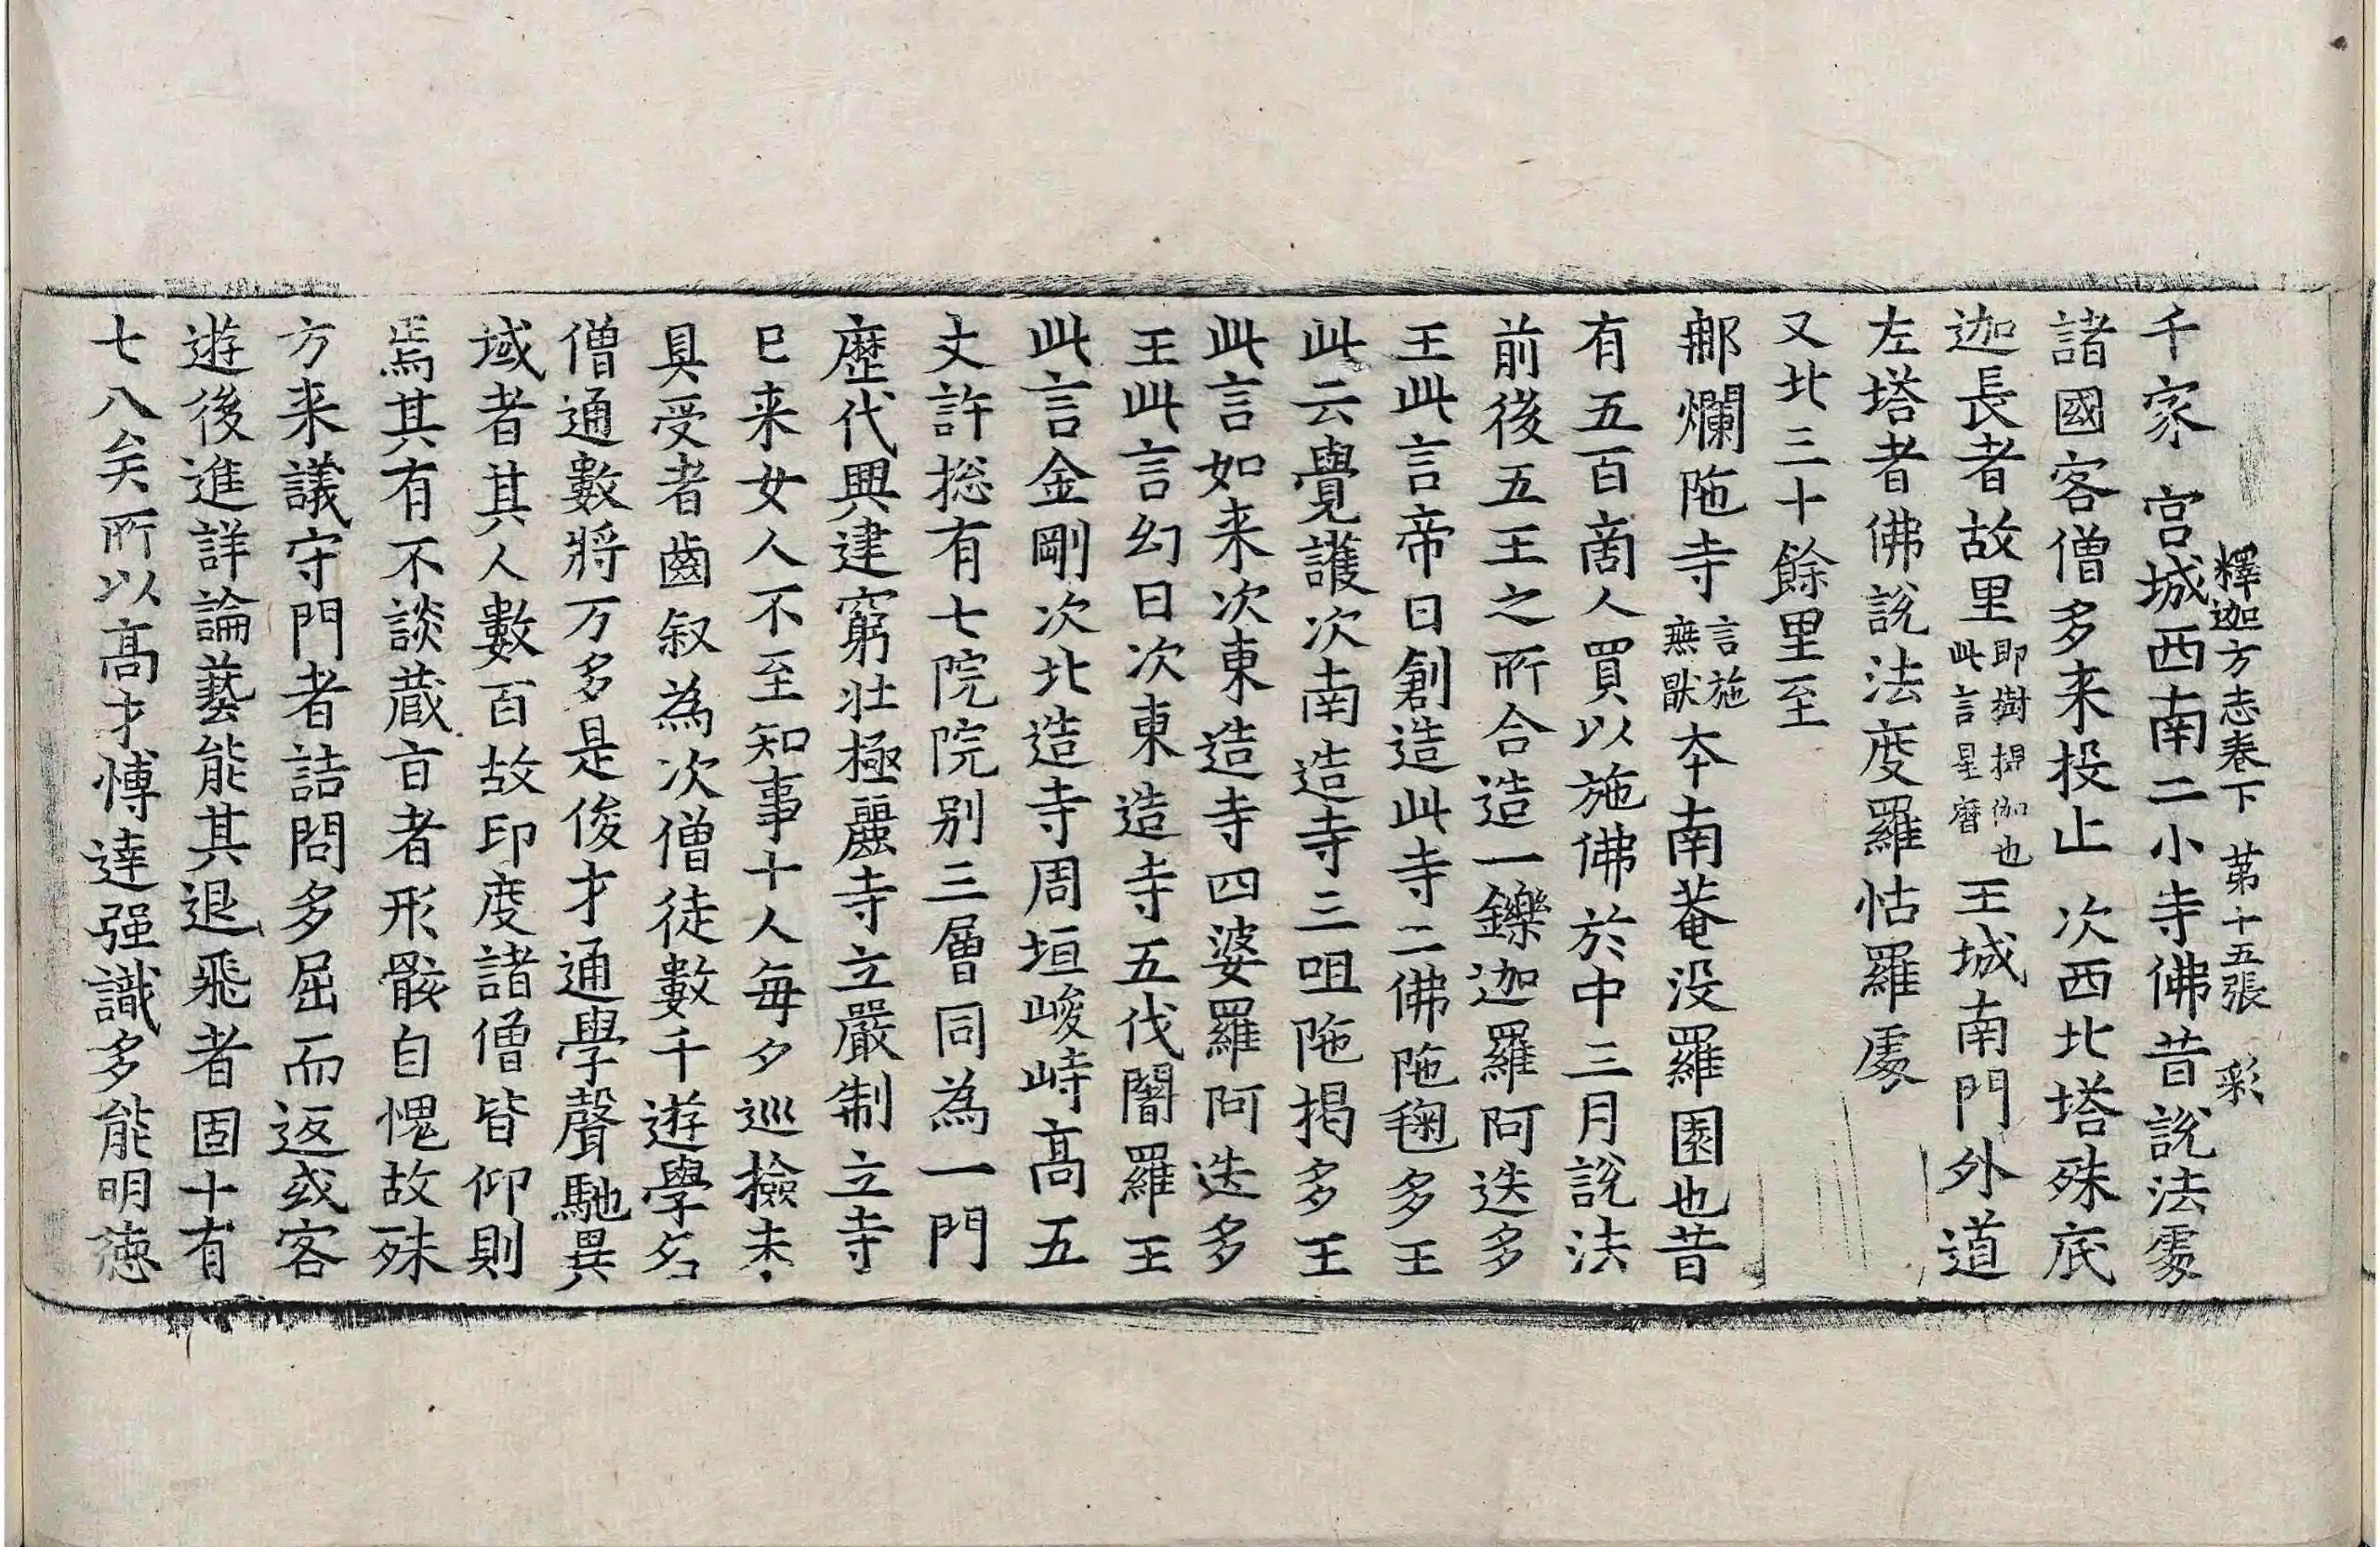 釋迦方志卷下　苐十五張　彩
千家　宮城西南二小寺佛昔說法處
諸國客僧多来投止　次西北塔殊底
迦長者故里即樹提伽也此言星曆王城南門外道
左塔者佛說法度羅怙羅處
又北三十餘里至
鄁爛陁寺言施無猒夲南菴没羅園也昔
有五百啇人買以施佛於中三月說法
前後五王之所合造一鑠迦羅阿迭多
王此言帝日創造此寺二佛陁毱多王
此云覺護次南造寺三呾陁揭多王
此言如来次東造寺四婆羅阿迭多
王此言幻日次東造寺五伐闍羅王
此言金剛次北造寺周垣峻峙高五
丈許揔有七院院别三層同為一門
歷代興建窮壯極麗寺立嚴制立寺
巳来女人不至知事十人每夕巡撿未
具受者齒叙為次僧徒數千遊學名
僧通數將万多是俊才通學聲馳異
域者其人數百故印度諸僧皆仰則
焉其有不談蔵㫖者形骸自愧故殊
方来議守門者詰問多屈而返或客
遊後進詳論藝能其退飛者固十有
七八矣所以高才愽達强識多能明德